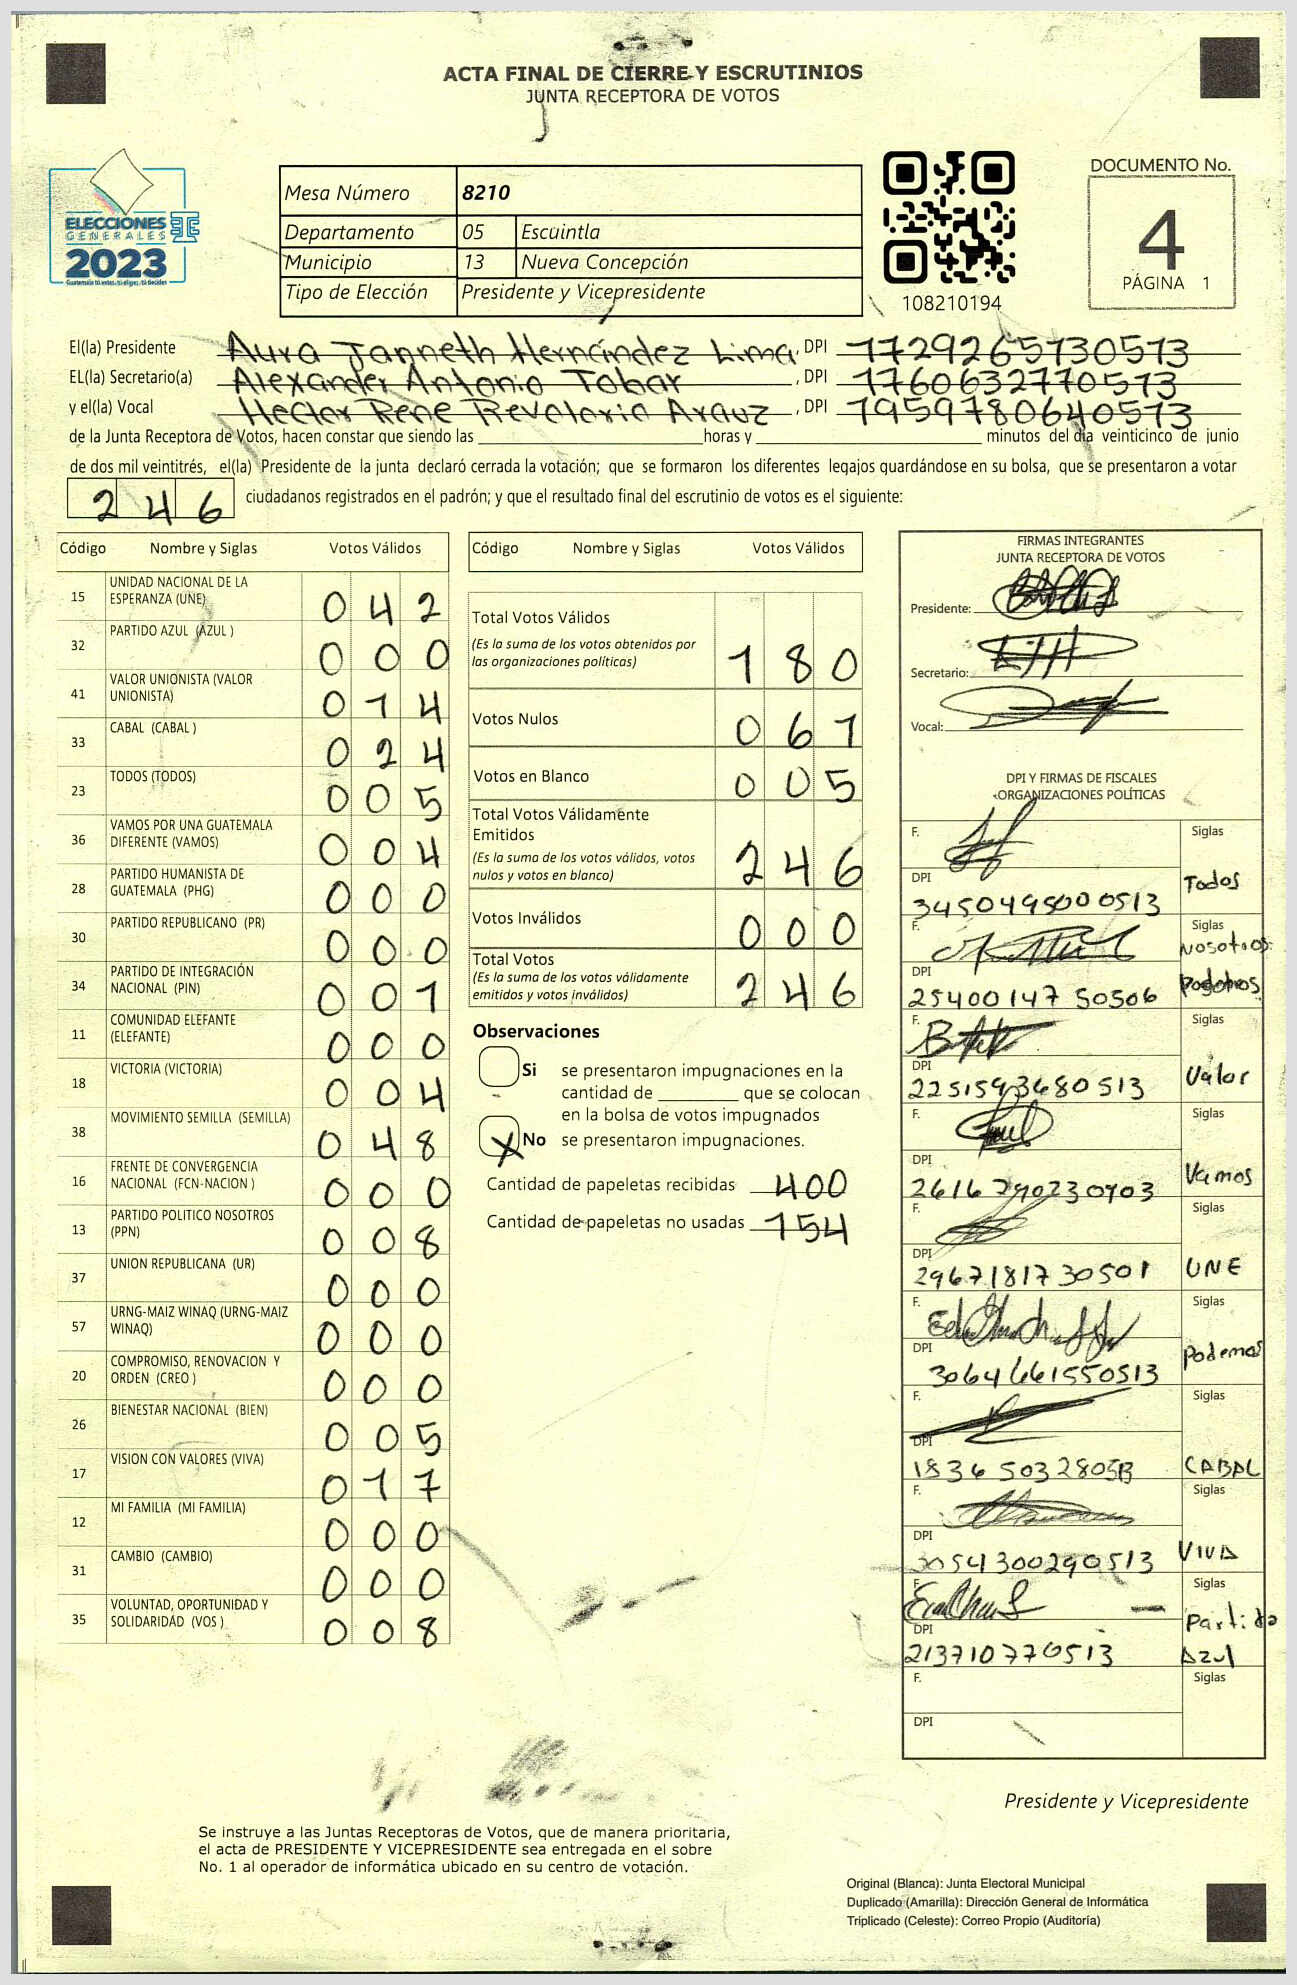 ACTA FINAL DE CIERRE Y ESCRUTINIOS
JUNTA RECEPTORA DE VOTOS
ELECCIONES
GENERALES
2023
Mesa Número 8210
Departamento 05 Escuintla
Municipio 13 Nueva Concepción
Tipo de Elección Presidente y Vicepresidente
108210194
DOCUMENTO No.
4
PÁGINA 1
El(la) Presidente Aura Janneth Hernández Lima, DPI 1729265130513
EL(la) Secretario(a) Alexander Antonio Tobar, DPI 1760632770513
y el(la) Vocal Hector Rene Revolorio Arauz, DPI 1959780640513
de la Junta Receptora de Votos, hacen constar que siendo las ____ horas y ____ minutos del día veinticinco de junio
de dos mil veintitrés, el(la) Presidente de la junta declaró cerrada la votación; que se formaron los diferentes legajos guardándose en su bolsa, que se presentaron a votar
246 ciudadanos registrados en el padrón; y que el resultado final del escrutinio de votos es el siguiente:
Código Nombre y Siglas Votos Válidos
15 UNIDAD NACIONAL DE LA ESPERANZA (UNE) 042
32 PARTIDO AZUL (AZUL ) 000
41 VALOR UNIONISTA (VALOR UNIONISTA) 014
33 CABAL (CABAL ) 024
23 TODOS (TODOS) 005
36 VAMOS POR UNA GUATEMALA DIFERENTE (VAMOS) 004
28 PARTIDO HUMANISTA DE GUATEMALA (PHG) 000
30 PARTIDO REPUBLICANO (PR) 000
34 PARTIDO DE INTEGRACIÓN NACIONAL (PIN) 001
11 COMUNIDAD ELEFANTE (ELEFANTE) 000
18 VICTORIA (VICTORIA) 004
38 MOVIMIENTO SEMILLA (SEMILLA) 048
16 FRENTE DE CONVERGENCIA NACIONAL (FCN-NACION ) 000
13 PARTIDO POLITICO NOSOTROS (PPN) 008
37 UNION REPUBLICANA (UR) 000
57 URNG-MAIZ WINAQ (URNG-MAIZ WINAQ) 000
20 COMPROMISO, RENOVACION Y ORDEN (CREO ) 000
26 BIENESTAR NACIONAL (BIEN) 005
17 VISION CON VALORES (VIVA) 017
12 MI FAMILIA (MI FAMILIA) 000
31 CAMBIO (CAMBIO) 000
35 VOLUNTAD, OPORTUNIDAD Y SOLIDARIDAD (VOS ) 008
Código Nombre y Siglas Votos Válidos
Total Votos Válidos
(Es la suma de los votos obtenidos por
las organizaciones políticas) 180
Votos Nulos 061
Votos en Blanco 005
Total Votos Válidamente
Emitidos
(Es la suma de los votos válidos, votos
nulos y votos en blanco) 246
Votos Inválidos 000
Total Votos
(Es la suma de los votos válidamente
emitidos y votos inválidos) 246
Observaciones
Si se presentaron impugnaciones en la
cantidad de ____ que se colocan
en la bolsa de votos impugnados
X No se presentaron impugnaciones.
Cantidad de papeletas recibidas 400
Cantidad de papeletas no usadas 154
FIRMAS INTEGRANTES
JUNTA RECEPTORA DE VOTOS
Presidente:
Secretario:
Vocal:
DPI Y FIRMAS DE FISCALES
ORGANIZACIONES POLÍTICAS
F. Siglas
DPI Todos
3450495000513
F. Siglas
Nosotros
DPI
25400147 50506
F. Siglas
DPI Valor
2251593680513
F. Siglas
DPI Vamos
2616290230903
F. Siglas
DPI
2967181730501 UNE
F. Siglas
DPI Podemos
3064661550513
F. Siglas
DPI
CABAL
F. Siglas
DPI VIVA
3054300290513
F. Siglas
Partido
DPI
213710770513 Azul
F. Siglas
DPI
Presidente y Vicepresidente
Se instruye a las Juntas Receptoras de Votos, que de manera prioritaria,
el acta de PRESIDENTE Y VICEPRESIDENTE sea entregada en el sobre
No. 1 al operador de informática ubicado en su centro de votación.
Original (Blanca): Junta Electoral Municipal
Duplicado (Amarilla): Dirección General de Informática
Triplicado (Celeste): Correo Propio (Auditoría)